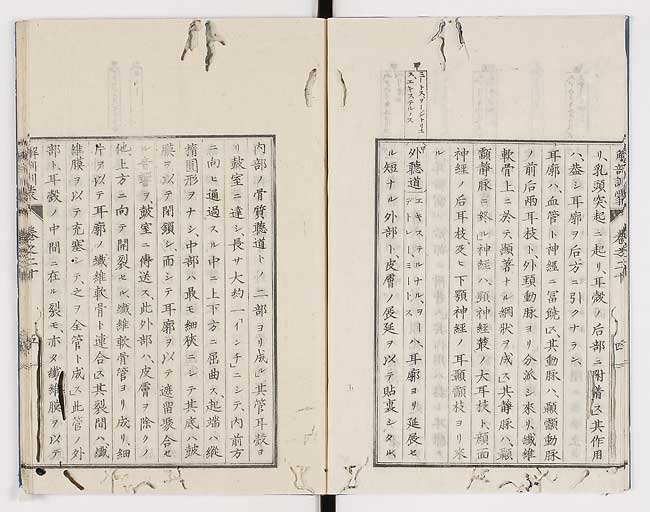 リ、乳頭突起ニ起リ、耳殼ノ后部ニ附着ス其作用
ハ、蓋シ耳廓ヲ后方ニ引クナラン、
耳廓ハ、血管ト神経ニ冨饒ス其動脉ハ、顳顬動脉
ノ前后両耳枝ト、外頚動脉ヨリ分派シ来リ、纎維
軟骨上ニ於テ、顕著ナル網状ヲ成ス其静脉ハ、顳
顬静脉ニ終ル神経ハ、頚神経叢ノ大耳枝ト、顔面
神経ノ后耳枝、及ヒ、下顎神経ノ耳顳顬枝ヨリ来
ル
ミートス、ヲージトリュス、エキステルノス
外聽道エキステルナル、ヲーデトレー、ミートスハ、耳廓ヨリ延展セ
ル短ナル外部ト、皮膚ノ展延ヲ以テ貼裏シタル、
内部ノ骨質聽道トノ二部ヨリ成ル其管耳殼ヨ
リ鼓室ニ達シ、長サ大約一「インチ」ニシテ、内前方
ニ向ヒ通過スル中ニ上下方ニ屈曲ス、起端ハ縱
楕圓形ヲナシ、中部ハ最モ細狭ニシテ其底ハ鼓
膜ヲ以テ閉鎖シ、而シテ耳廓ヲ以テ遮留聚合セ
ル音響ヲ、鼓室ニ傳送ス、此外部ハ、皮膚ヲ除クノ
他、上方ニ向テ開裂セル、纎維軟骨管ヨリ成リ、細
片ヲ以テ耳廓ノ纎維軟骨ト連合ス其裂間ハ、纎
維膜ヲ以テ充塞シテ、之ヲ全管ト成ス此管ノ外
部ト、耳殼ノ中間ニ在ル裂モ、亦タ纎維膜ヲ以テ